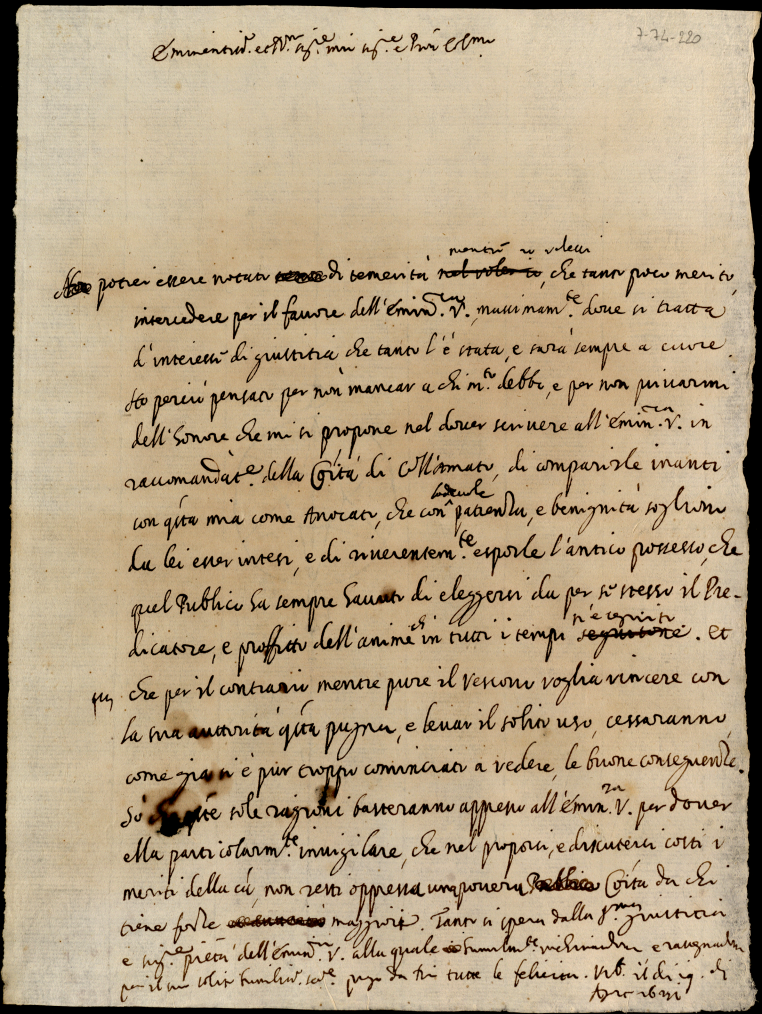 7-74-220
Eminentiss.º et R.mo sig.re mio sig.re e Pron Col.mo
mentre io volessi
potrei essere notato di temerità nel voler io, che tanto poco merito,
intercedere per il favore dell'Emin.za V., massimam.te dove si tratta
d'interesse di giustitia che tanto l'è stata, e sarà sempre a cuore.
Ho perciò pensato per non mancar a chi m.to debbo, e per non privarmi
dell'honore che mi si propone nel dover scrivere all'Emin.za V. in
raccomandat.e della Cõità di Coll'Amato, di comparirle inanti
con q̃sta mia come Avocato, che con patienza, e benignità sogliono
da lei esser intesi, e di riverentem.te esporle l'antico possesso, che
quel Publico ha sempre havuto di eleggersi da per se stesso il Pre-
dicatore, e proffitto dell'anime ch in tutti i tempi si è seguito. Et
che per il contrario mentre pure il Vescovo voglia vincere con
la sua auttorità q̃sta pugna, e levar il solito uso, cessaranno,
come già si è pur troppo cominciato a vedere, le buone conseguenze.
So q̃ste sole ragioni basteranno appresso all'Emin.za V. per dover
ella particolarm.te invigilare, che nel proporsi, e discutersi costì i
meriti della cã, non resti oppressa una povera Cõità da chi
tiene forze maggiori. Tanto si spera dalla s.ma giustitia
e sing.re pietà dell'Emin.za V. alla quale humilm.te inchinandomi e rassegnandom
per il mio solito humiliss.º ser.re prego da Dio tutte le felicità. Urb.º il dì 19. di